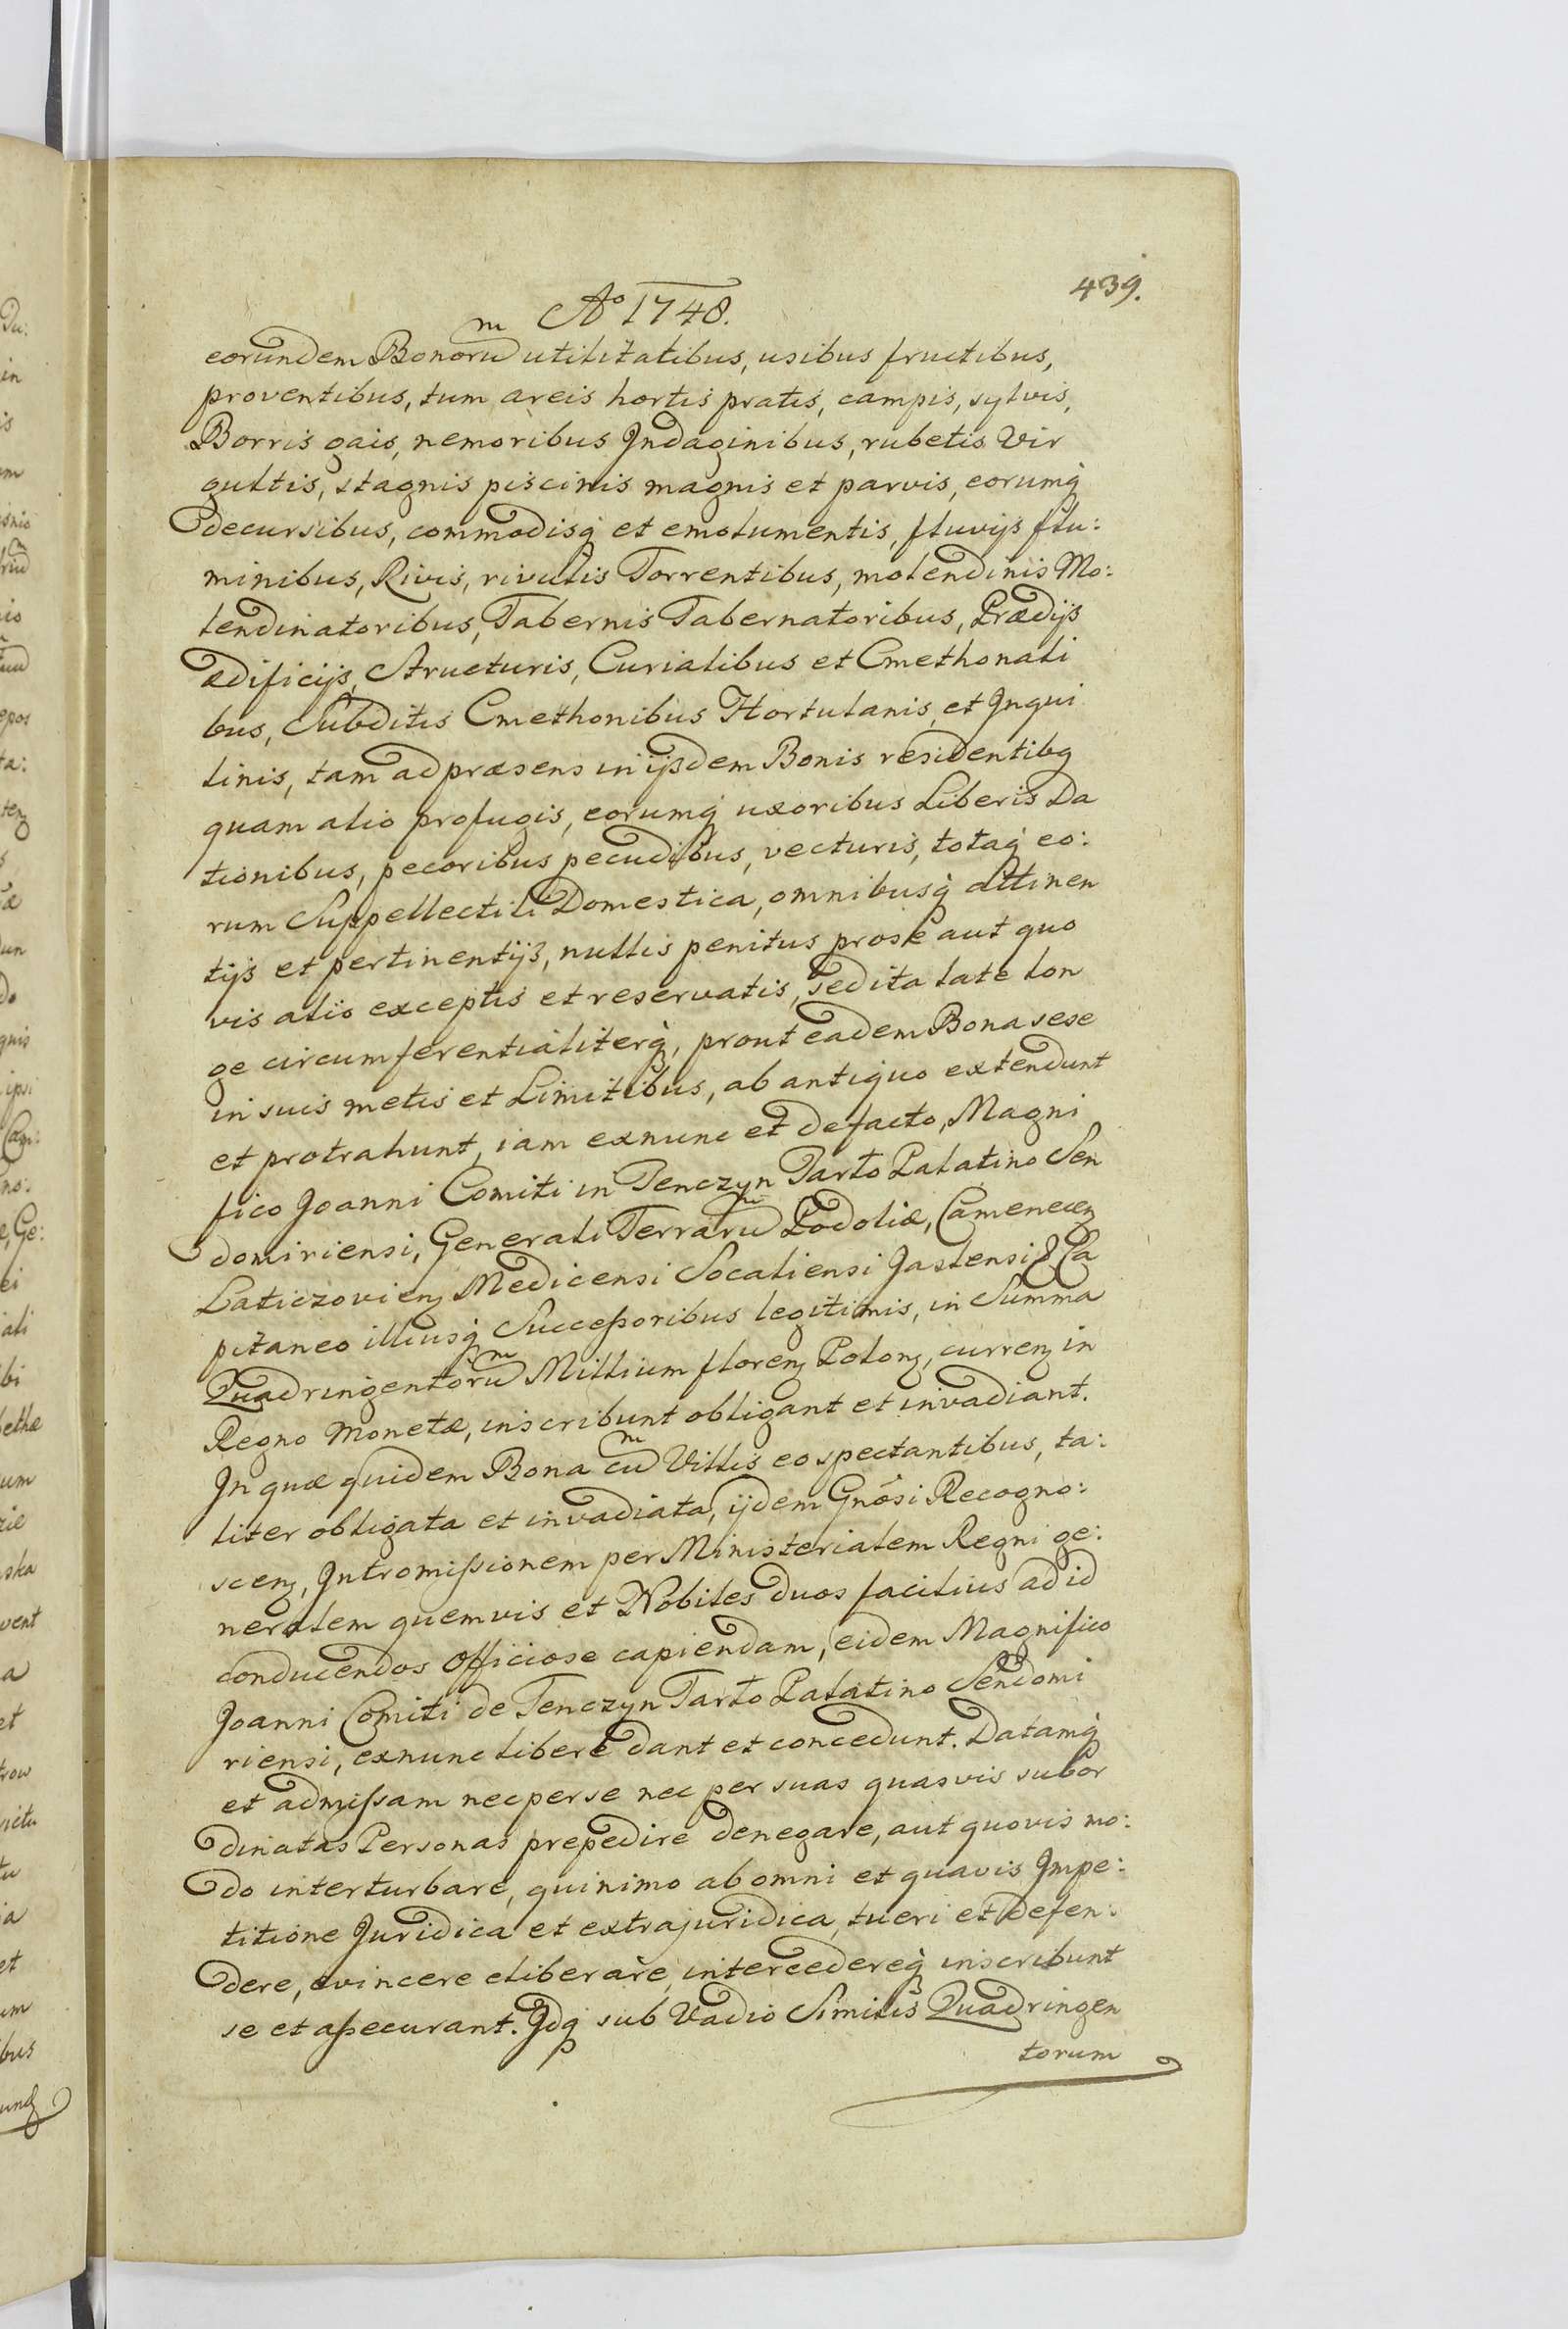 439.
Ao 1748.
eorundem Bonorum utilitatibus, usibus fructibus,
proventibus, tum areis hortis pratis, campis, sylvis,
Borris gais, nemoribus Indaginibus, rubetis Vir
gultis, stagnis piscinis magnis et parvis, eorumq
decursibus, commodisq et emolumentis, fluvijs flu:
minibus, Rivis, rivulis Torrentibus, molendinis Mo:
lendinatoribus, Tabernis Tabernatoribus, Prædijs
ædificijs, Structuris, Curialibus et Cmethonali
bus, Subditis Cmethonibus Hortulanis, et Inqui
linis, tam ad præsens in ijsdem Bonis residentibq
quam alio profugis, eorumq uxoribus Liberis Da
tionibus, pecoribus pecudibus, vecturis, totaq eo:
rum Suppellectili Domestica, omnibusq attinen
tijs et pertinentijs, nullis penitus pro se aut quo
vis alio exceptis et reservatis, sed ita late lon
ge circumferentialiterq, prout eadem Bona sese
in suis metis et Limitibus, ab antiquo extendunt
et protrahunt, iam exnunc et de facto, Magni
fico Joanni Comiti in Tenczyn Tarło Palatino Sen
domiriensi, Generali Terrarum Podoliæ, Camenecen
Laticzovien Medicensi Socaliensi Jaslensi & Ca
pitaneo illiusq Successoribus legitimis, in Summa
Quadringentorum Millium floren Polon, curren in
Regno Monetæ, inscribunt obligant et invadiant.
In quæ quidem Bona cum Villis eo spectantibus, ta:
liter obligata et invadiata, ijdem Gnosi Recogno:
scen, Intromissionem per Ministerialem Regni ge:
neralem quemvis et Nobiles duos facilius ad id
conducendos officiose capiendam, eidem Magnifico
Joanni Comiti de Tenczyn Tarło Palatino Sendomi
riensi, exnunc libere dant et concedunt. Datamq
et admissam nec per se nec per suas quasvis subor
dinatas Personas prepedire denegare, aut quovis mo:
do interturbare, quinimo ab omni et quavis Impe:
titione Juridica et extrajuridica, tueri et defen:
dere, evincere eliberare, intercedereq inscribunt
se et assecurant. Idq sub Vadio Similis Quadringen
torum